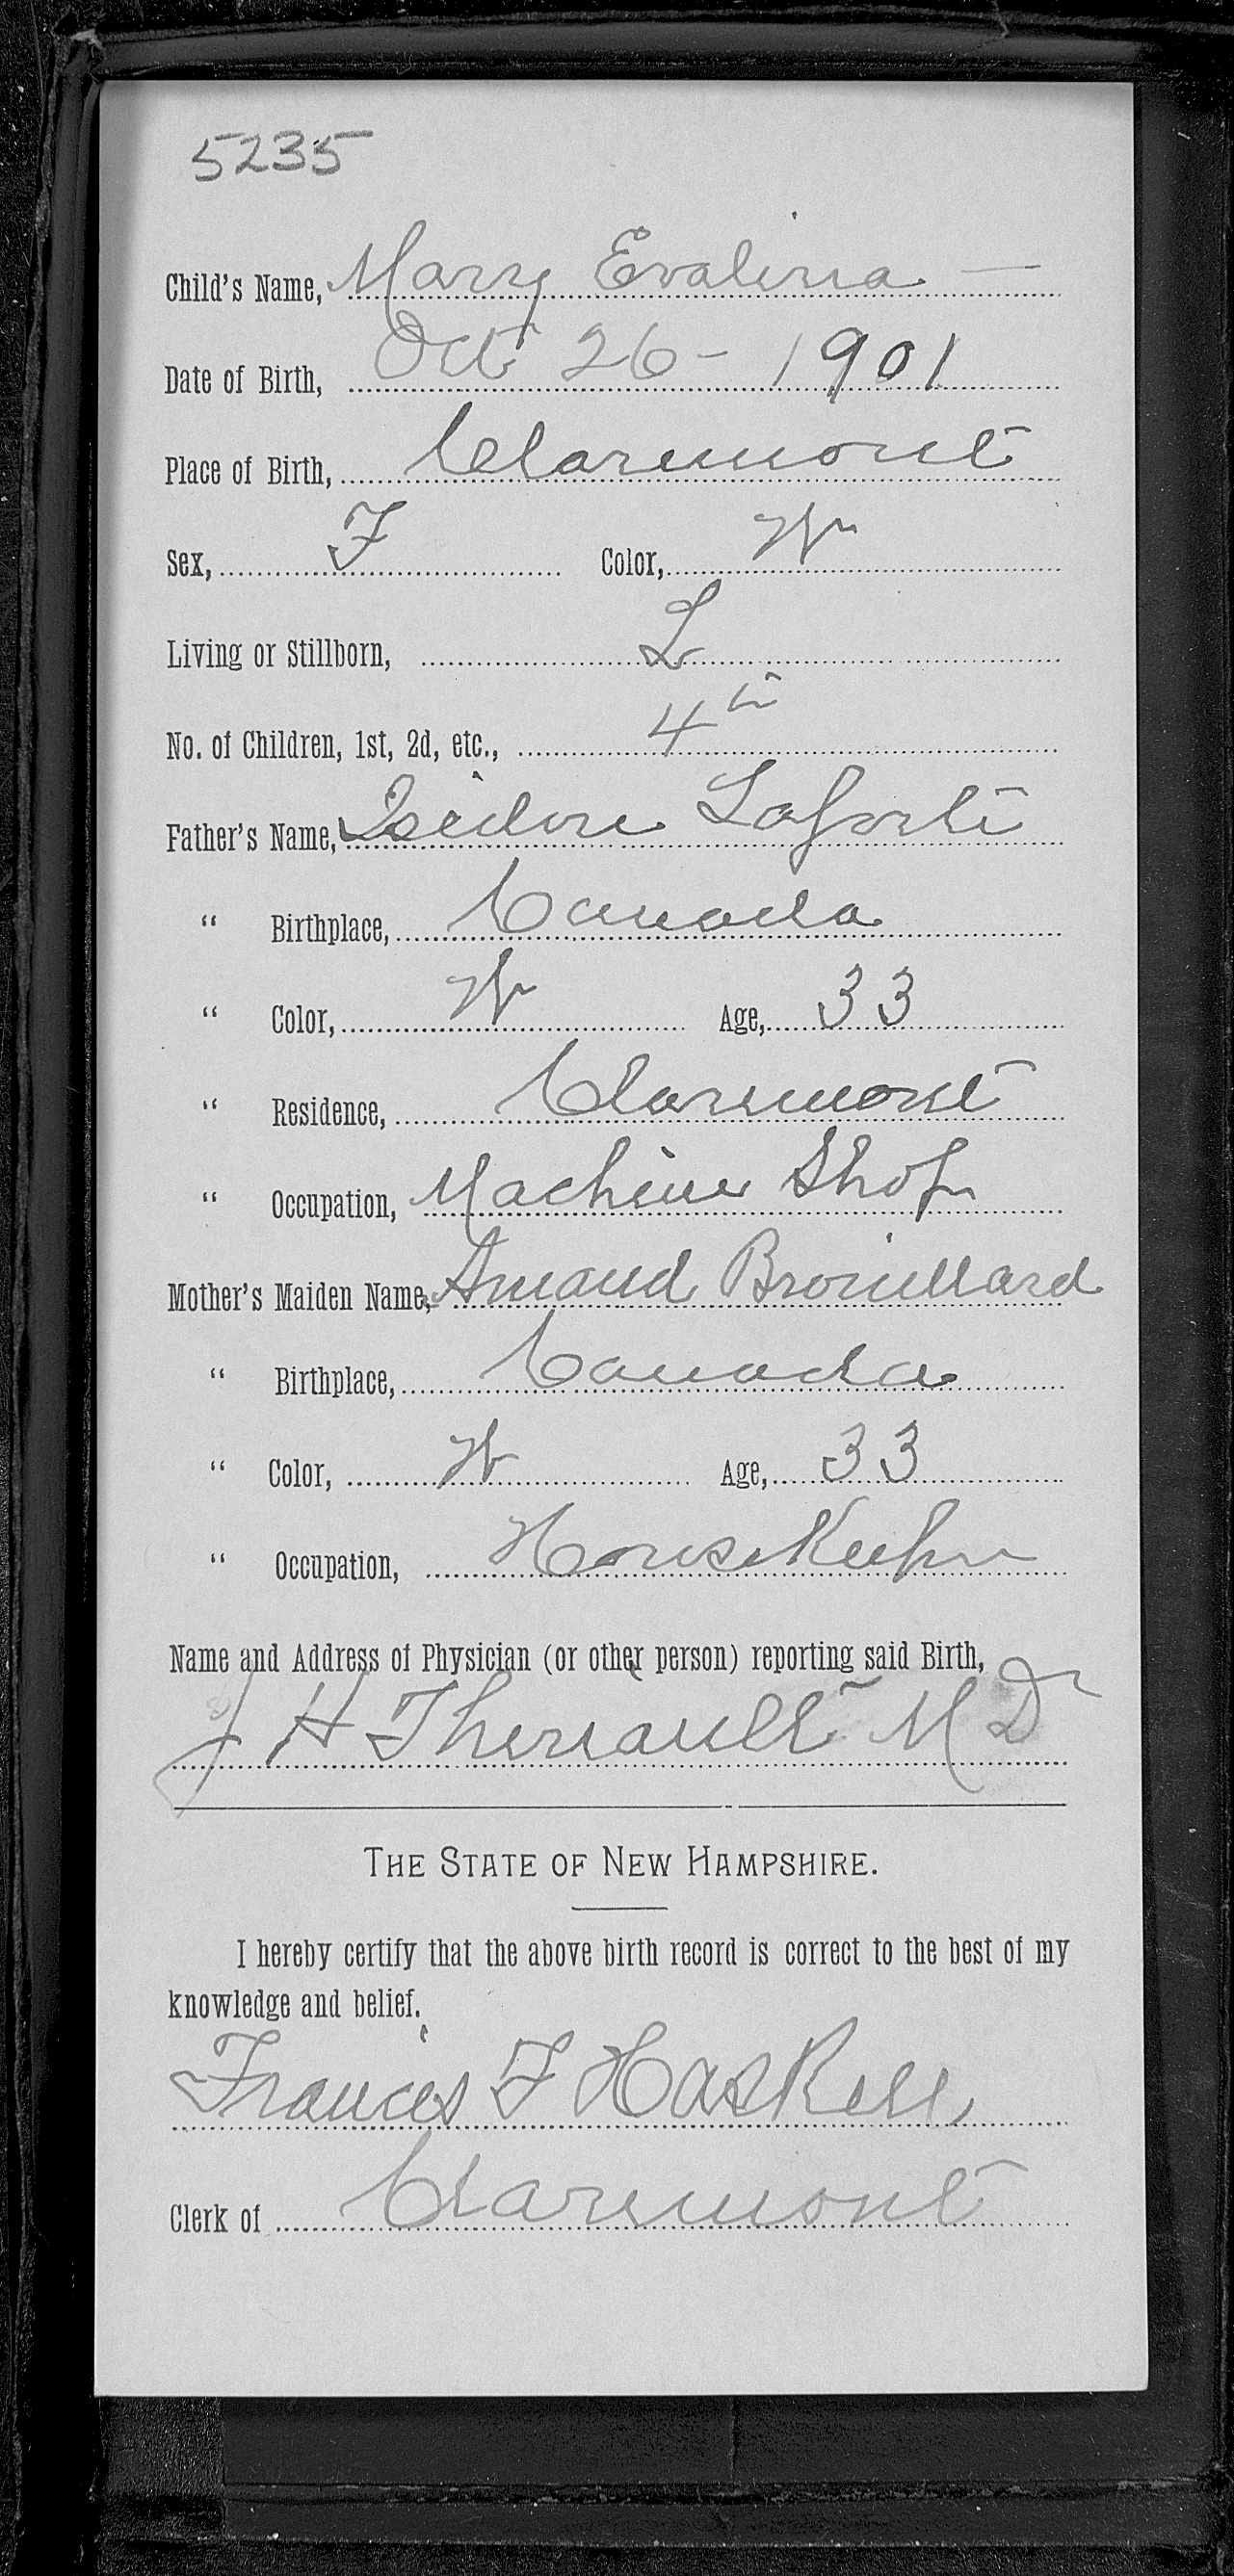 5235
Child's Name, Mary Evalina —
Date of Birth, Oct 26 - 1901
Place of Birth, Claremont
Sex, F Color, W
Living or Stillborn, L
No. of Children, 1st, 2d, etc., 4th
Father's Name, Isidore Laforte
" Birthplace, Canada
" Color, W Age, 33
" Residence, Claremont
" Occupation, Machine Shop
Mother's Maiden Name, Amaud Brouillard
" Birthplace, Canada
" Color, W Age, 33
" Occupation, HouseKeeper
Name and Address of Physician (or other person) reporting said Birth,
J H Theriault M D
THE STATE OF NEW HAMPSHIRE.
I hereby certify that the above birth record is correct to the best of my
knowledge and belief.
Frances F Haskell
Clerk of Claremont